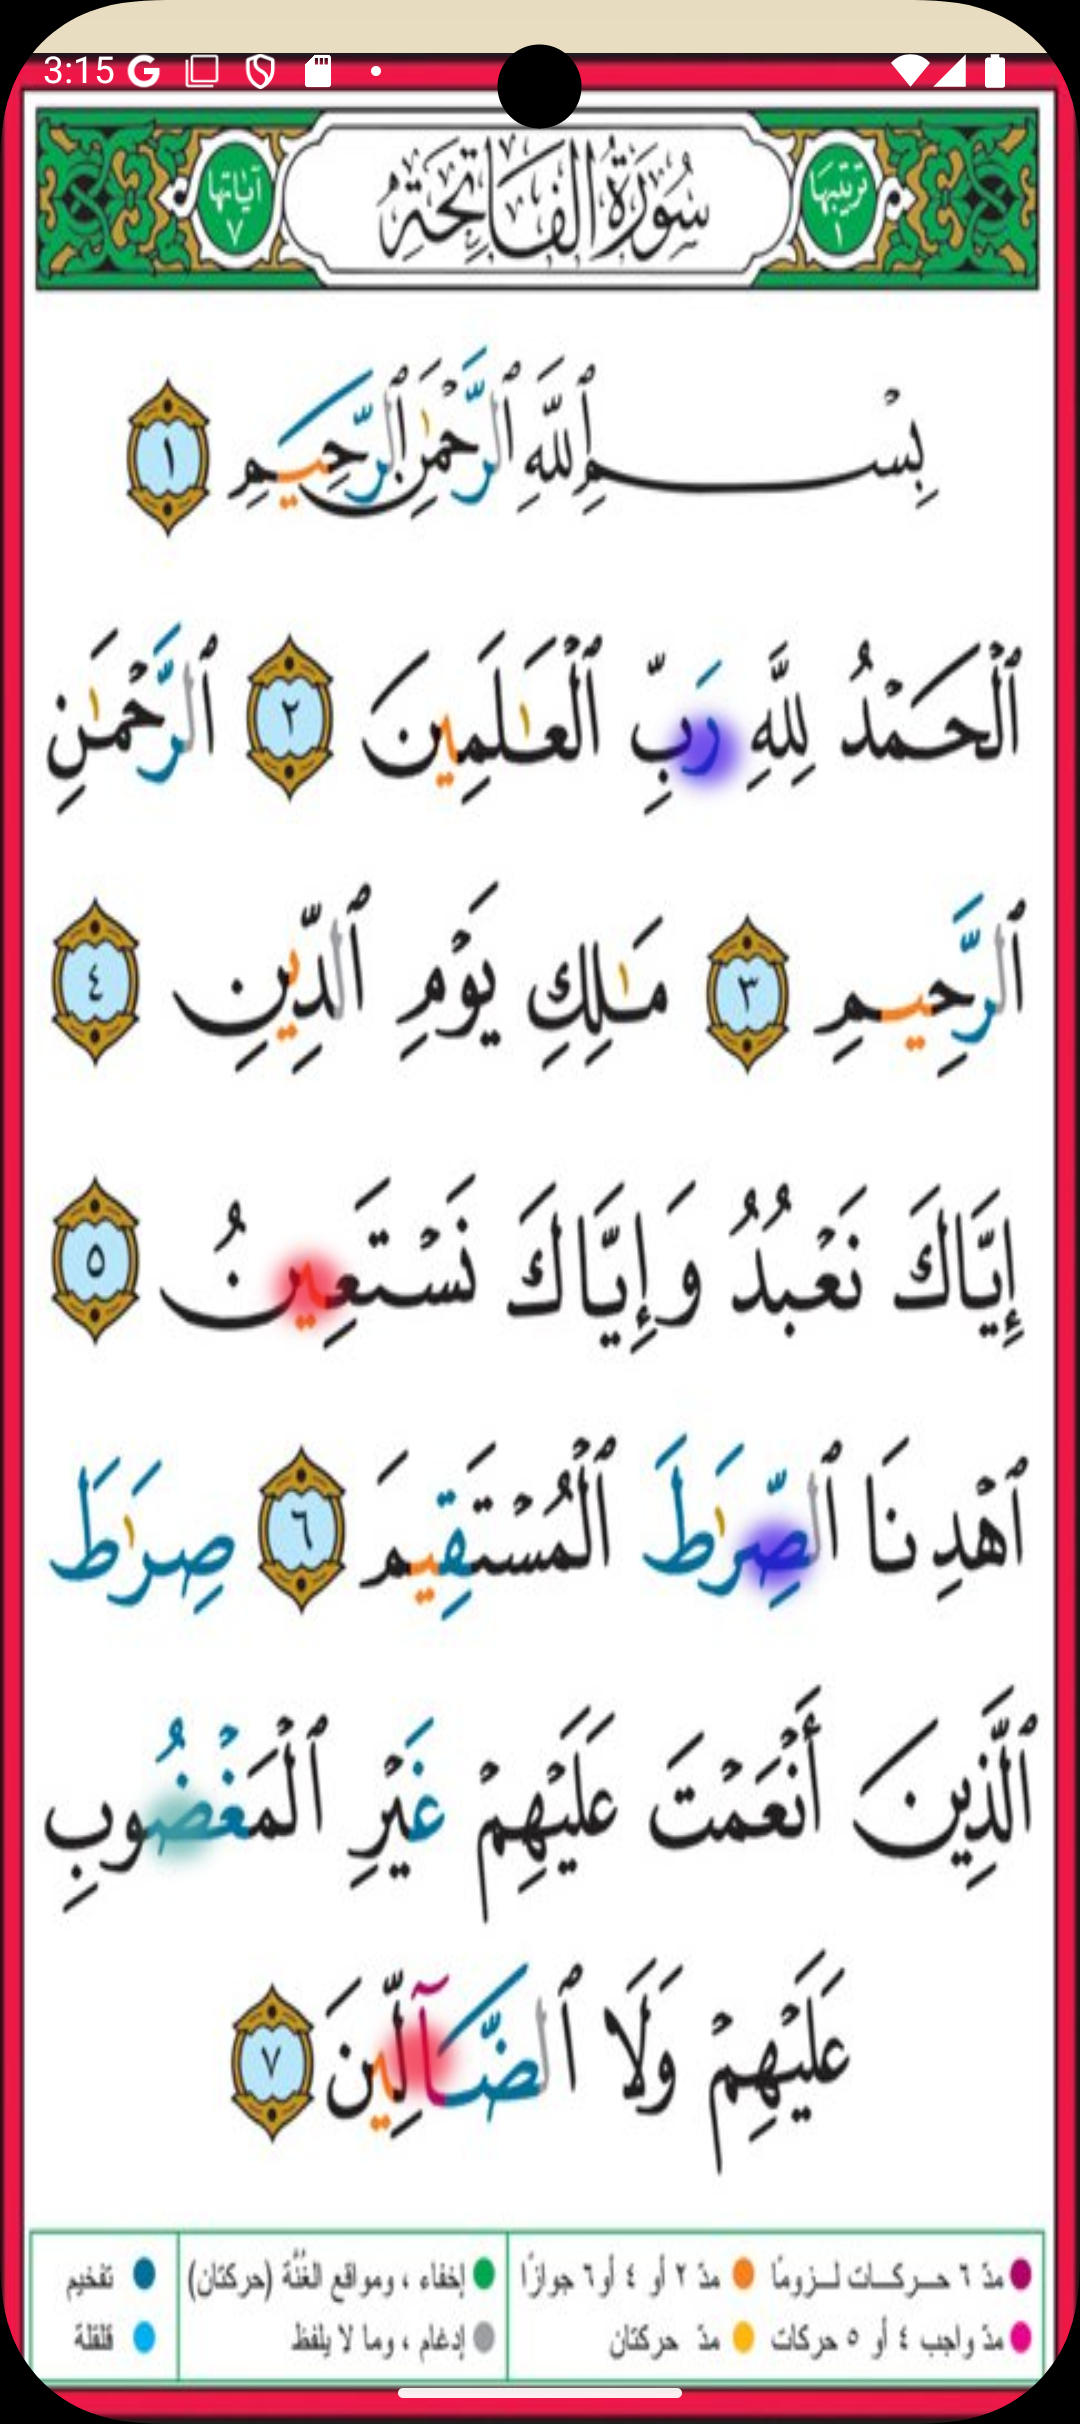 3:15
ترتيبها ١
سُورَةُ الفَاتِحَةِ
آياتها ٧
بِسْمِ ٱللَّهِ ٱلرَّحْمَٰنِ ٱلرَّحِيمِ ١
ٱلْحَمْدُ لِلَّهِ رَبِّ ٱلْعَٰلَمِينَ ٢ ٱلرَّحْمَٰنِ
ٱلرَّحِيمِ ٣ مَٰلِكِ يَوْمِ ٱلدِّينِ ٤
إِيَّاكَ نَعْبُدُ وَإِيَّاكَ نَسْتَعِينُ ٥
ٱهْدِنَا ٱلصِّرَٰطَ ٱلْمُسْتَقِيمَ ٦ صِرَٰطَ
ٱلَّذِينَ أَنْعَمْتَ عَلَيْهِمْ غَيْرِ ٱلْمَغْضُوبِ
عَلَيْهِمْ وَلَا ٱلضَّآلِّينَ ٧
مدّ ٦ حركات لزومًا مدّ ٢ أو ٤ أو ٦ جوازًا إخفاء ، ومواقع الغُنَّة (حركتان) تفخيم
مدّ واجب ٤ أو ٥ حركات مدّ حركتان إدغام ، وما لا يلفظ قلقلة